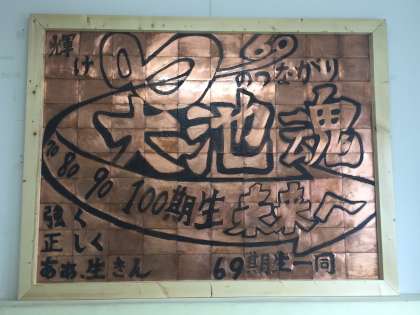 輝け
69
のつながり
大池魂
70
80
90
100期生
未来へ
強く
正しく
ああ、生きん
69期生一同